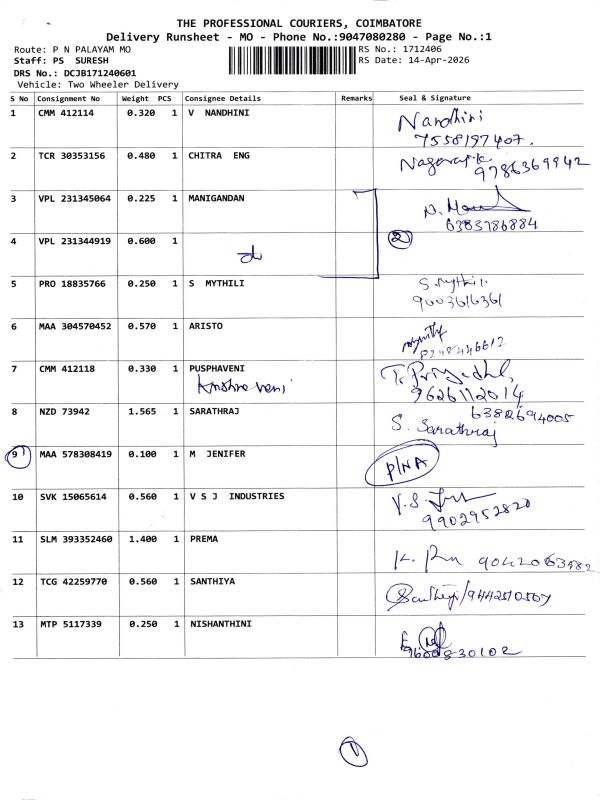 THE PROFESSIONAL COURIERS, COIMBATORE
Delivery Runsheet - MO - Phone No.:9047080280 - Page No.:1
Route: P N PALAYAM MO RS No.: 1712406
Staff: PS SURESH RS Date: 14-Apr-2026
DRS No.: DCJB171240601
Vehicle: Two Wheeler Delivery
S No Consignment No Weight PCS Consignee Details Remarks Seal & Signature
1 CMM 412114 0.320 1 V NANDHINI Nandhini
7558197407.
2 TCR 30353156 0.480 1 CHITRA ENG
9786369942
3 VPL 231345064 0.225 1 MANIGANDAN
6383786884
4 VPL 231344919 0.600 1 do 2
5 PRO 18835766 0.250 1 S MYTHILI S.Mythili
9003616361
6 MAA 304570452 0.570 1 ARISTO
7 CMM 412118 0.330 1 PUSPHAVENI
9626112014
8 NZD 73942 1.565 1 SARATHRAJ 6382694005
S. Sarathraj
9 MAA 578308419 0.100 1 M JENIFER P/NA
10 SVK 15065614 0.560 1 V S J INDUSTRIES V.S.
9902952820
11 SLM 393352460 1.400 1 PREMA
12 TCG 42259770 0.560 1 SANTHIYA
13 MTP 5117339 0.250 1 NISHANTHINI
9600830102
1